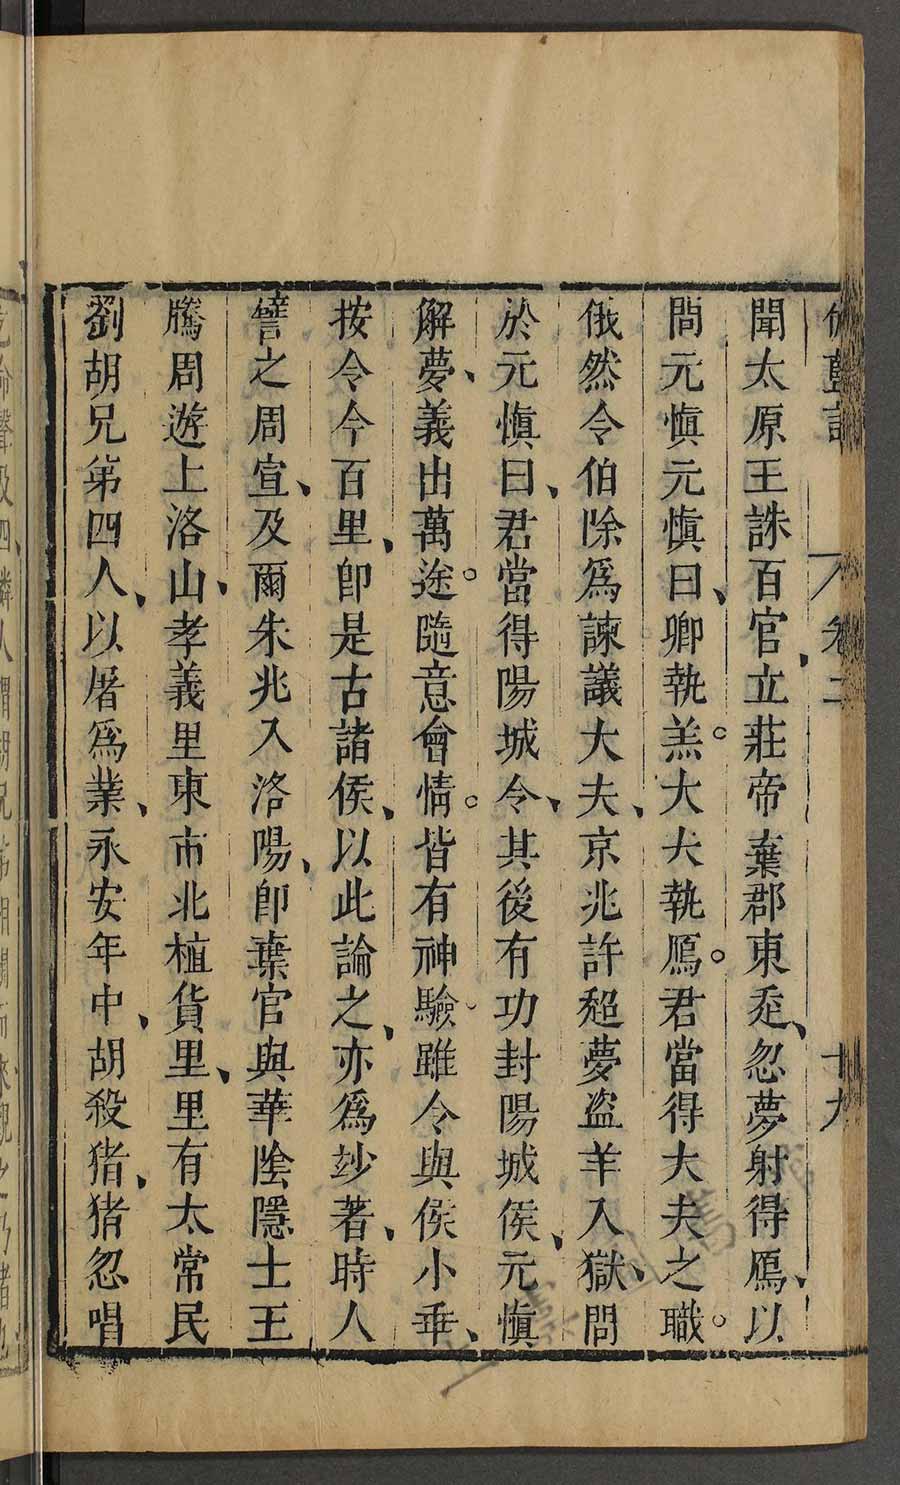 伽藍記 卷二 十九
聞太原王誅百官、立莊帝棄郡東走、忽夢射得鴈、以
問元愼元愼曰、卿執羔。大夫執鴈。君當得大夫之職。
俄然令伯除爲諫議大夫、京兆許超夢盜羊入獄、問
於元愼曰、君當得陽城令、其後有功封陽城侯、元愼
解夢、義出萬途。隨意會情。皆有神驗。雖令與侯小乖、
按令今百里、卽是古諸侯、以此論之、亦爲妙著、時人
譬之周宣、及爾朱兆入洛陽、卽棄官與華陰隱士王
騰周遊上洛山、孝義里東市北植貨里、里有太常民
劉胡兄第四人、以屠爲業、永安年中、胡殺猪、猪忽唱